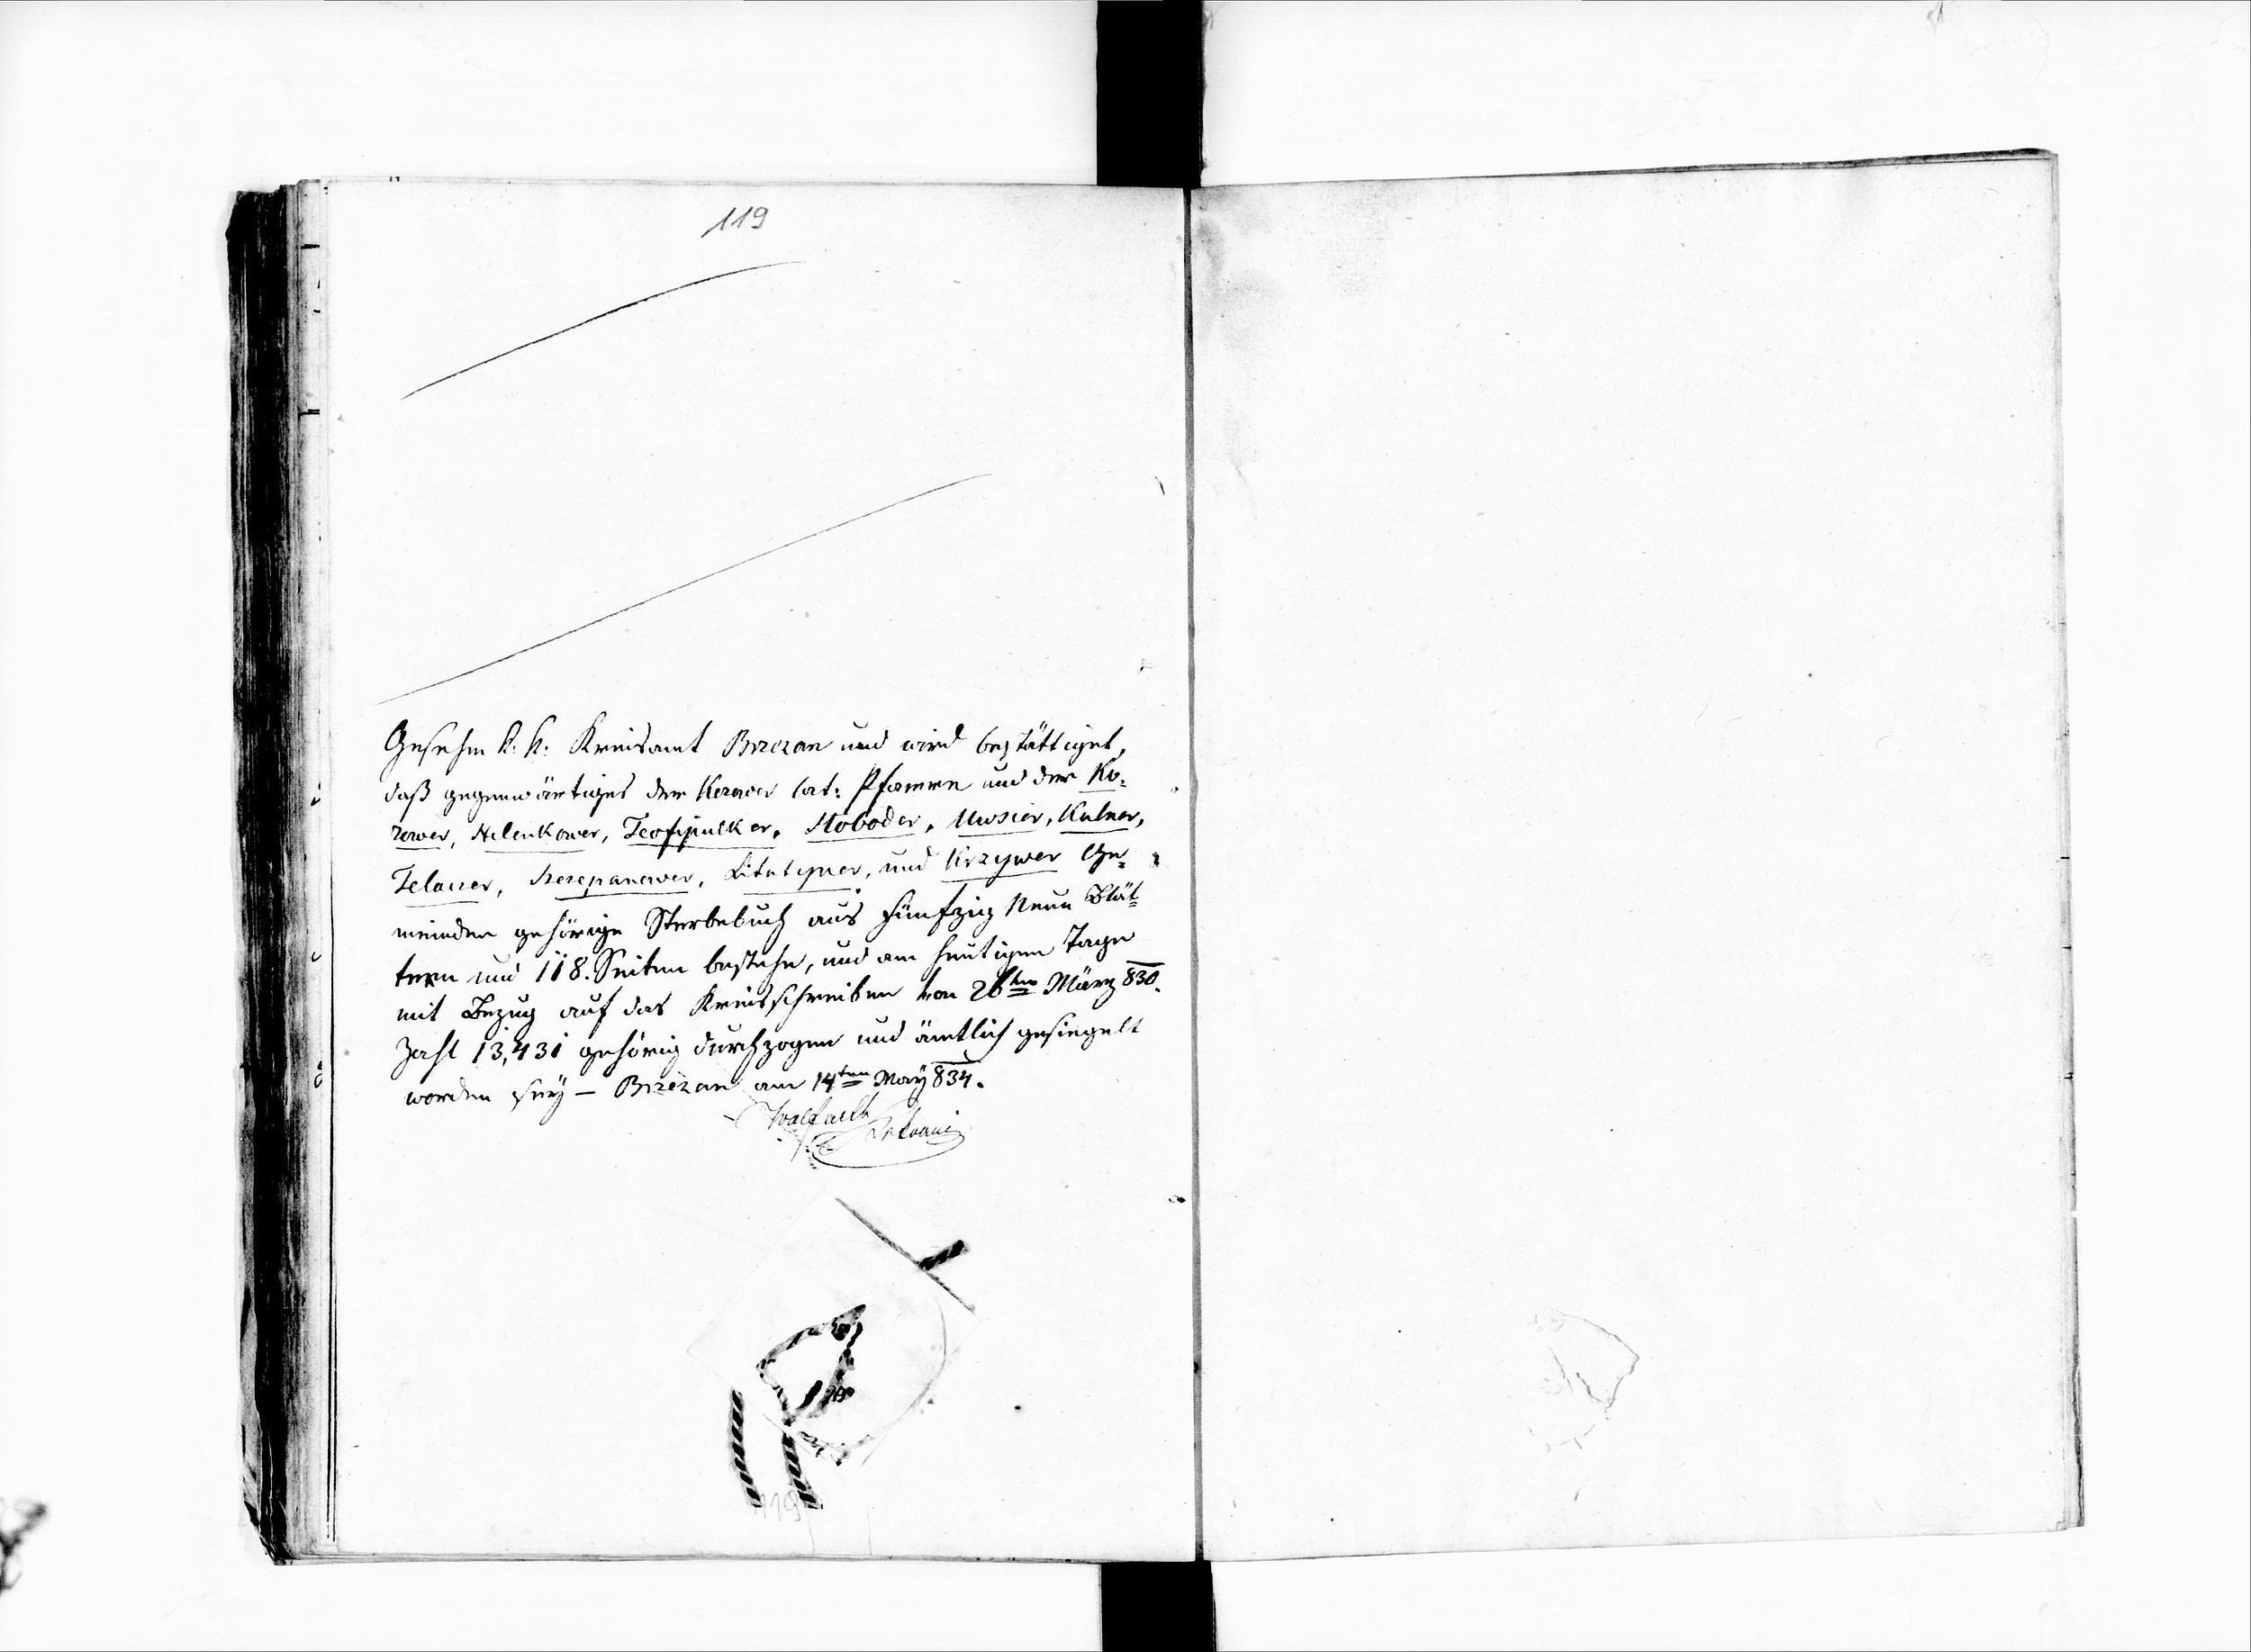 119
Gesehen k: k: Kreisamt Brzezan und wird bestättiget,
daß gegenwärtiges der Kozower lat: Pfarre und der Ko=
zower, Helenkower, Teofipulker, Sloboder, Uwsier, Kalner,
Telaczer, Szczepanower, Litiatyner, und Krzywer Ge=
meinden gehörige Sterbebuch aus fünfzig Neun Blät=
tern und 118. Seiten bestehe, und am heutigen Tage
mit Bezug auf das Kreisschreiben von 26ten März 830.
Zahl 13,431 gehörig durchzogen und ämtlich gesiegelt
worden sey – Brzezan am 14ten May 834.
119